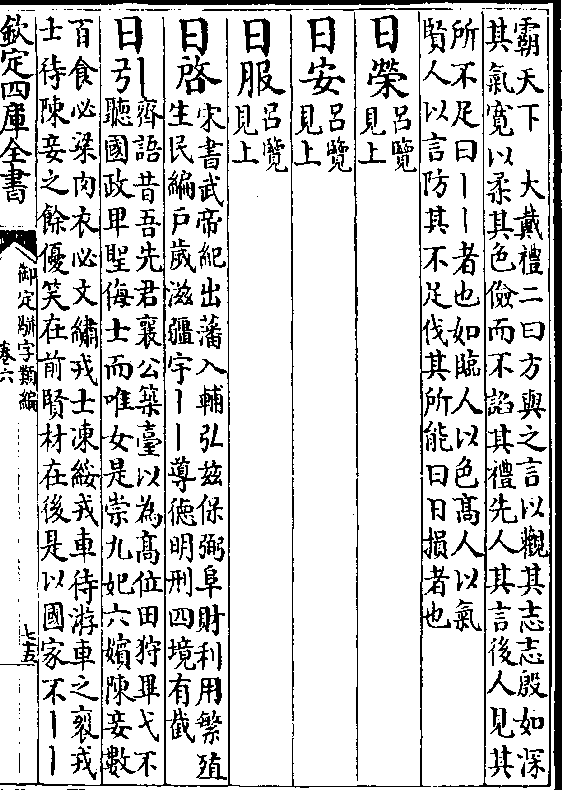 霸天下　大戴禮二曰方與之言以觀其志志殷如深
其氣寛以柔其色儉而不諂其禮先人其言後人見其
所不足曰丨丨者也如臨人以色髙人以氣
賢人以言防其不足伐其所能曰日損者也
日榮
呂覽
見上
日安
呂覽
見上
日服
呂覽
見上
日啓
宋書武帝紀出藩入輔弘兹保弼阜財利用繁殖
生民編戸歲滋疆宇丨丨導德明刑四境有截
日引
丨齊語昔吾先君襄公築臺以為髙位田狩畢弋不
聽國政卑聖侮士而唯女是崇九妃六嬪陳妾數
百食必粱肉衣必文繡戎士凍綏戎車待游車之裒戎
士待陳妾之餘優笑在前賢材在後是以國家不丨丨
欽定四庫全書
御定駢字類編
卷六
七五